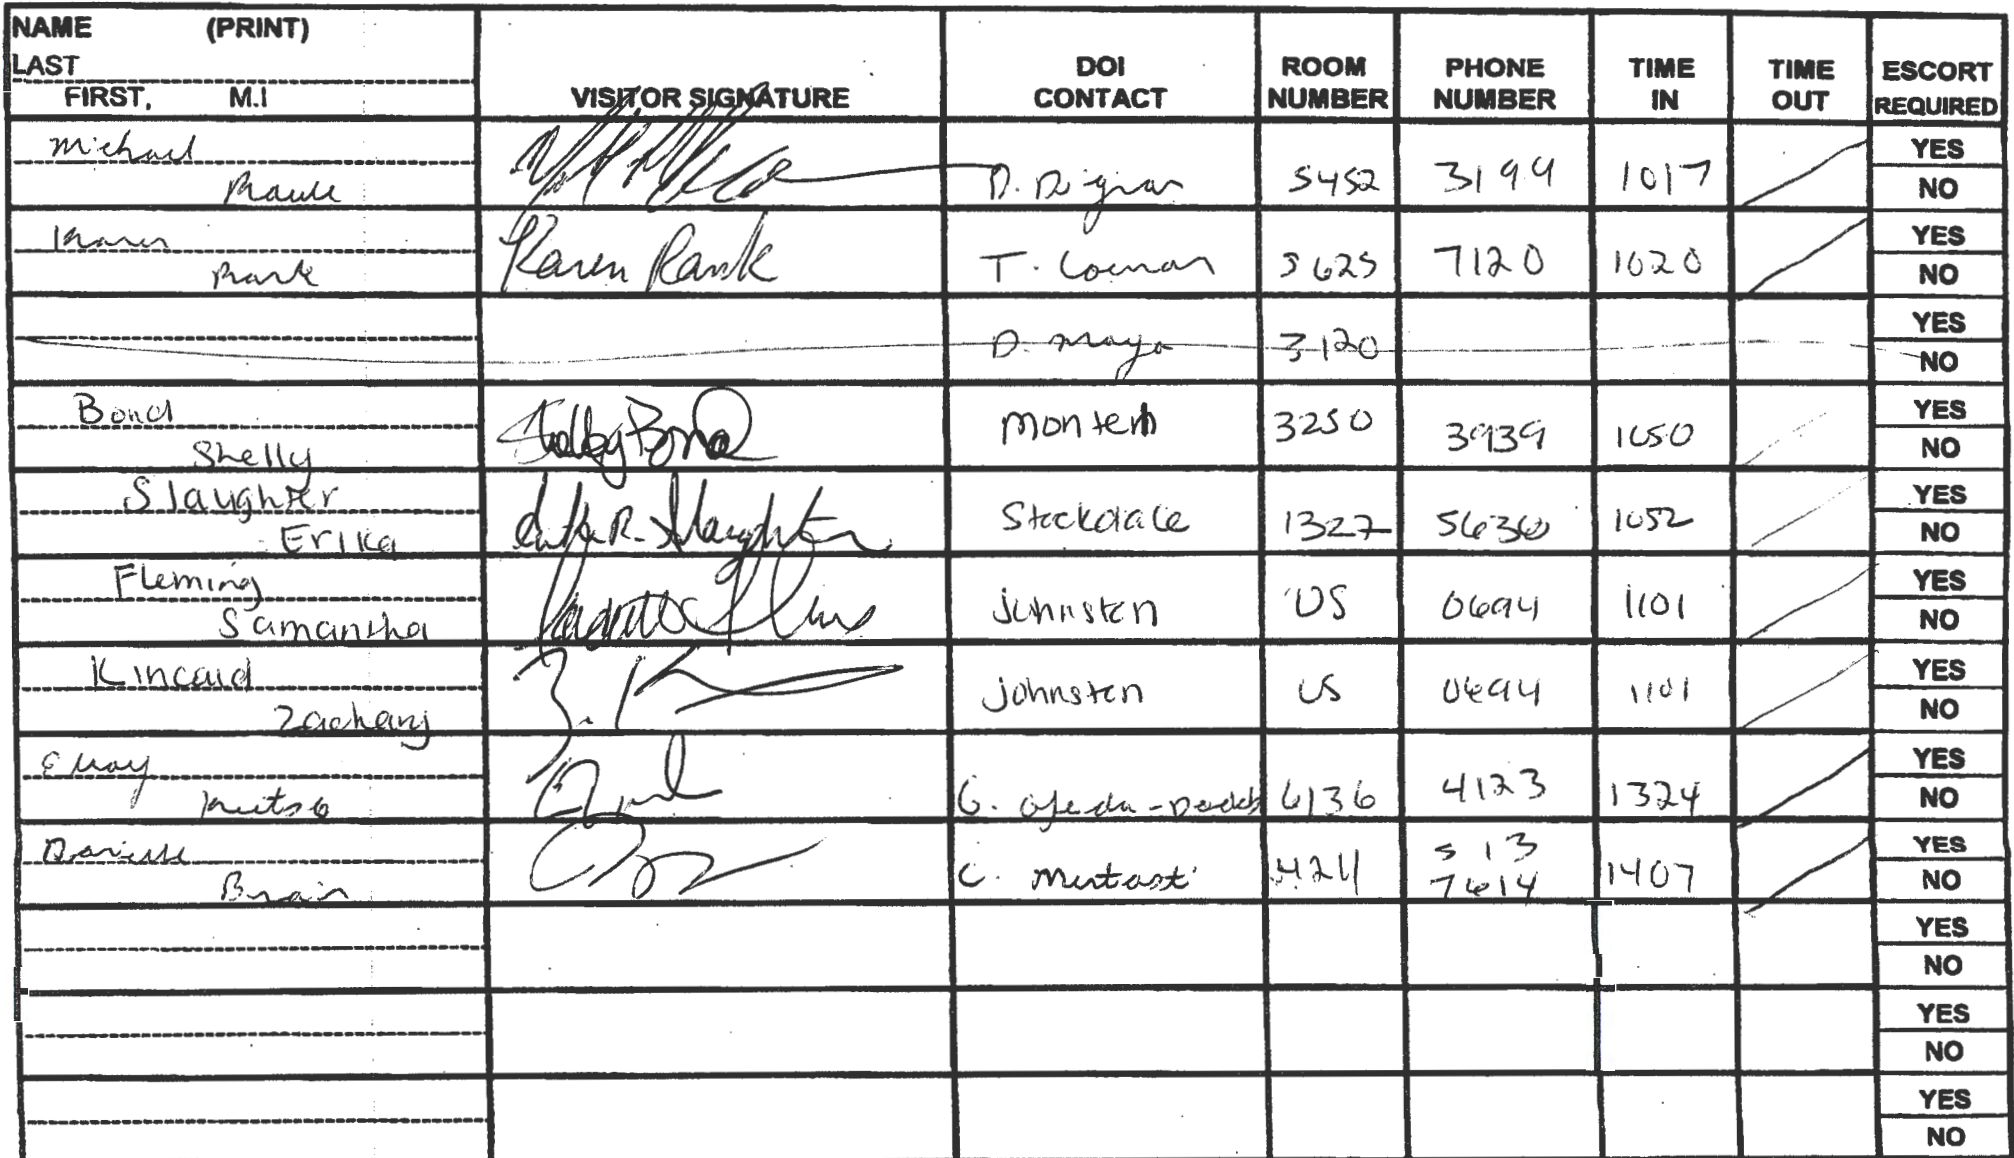 NAME (PRINT)
LAST
FIRST, M.I
VISITOR SIGNATURE
DOI CONTACT
ROOM NUMBER
PHONE NUMBER
TIME IN
TIME OUT
ESCORT REQUIRED
Michael
D. Dignan 5452 3199 1017 YES NO
Karen
Rank
Karen Rank T. 5625 7120 1020 YES NO
D. Maya 3120 YES NO
Bond
Shelly
Shelby Bond Monteith 3250 3939 1050 YES NO
Slaughter
Erika
Erika R. Slaughter Stockdale 1327 5636 1052 YES NO
Fleming
Samantha
Samantha Johnston US 0694 1101 YES NO
Kincaid
Zachary
Z. K Johnston US 0694 1101 YES NO
G. Ojeda-Dodds 6136 4123 1324 YES NO
Danielle
Brain
C. 4211 513 7614 1407 YES NO
YES
NO
YES
NO
YES
NO